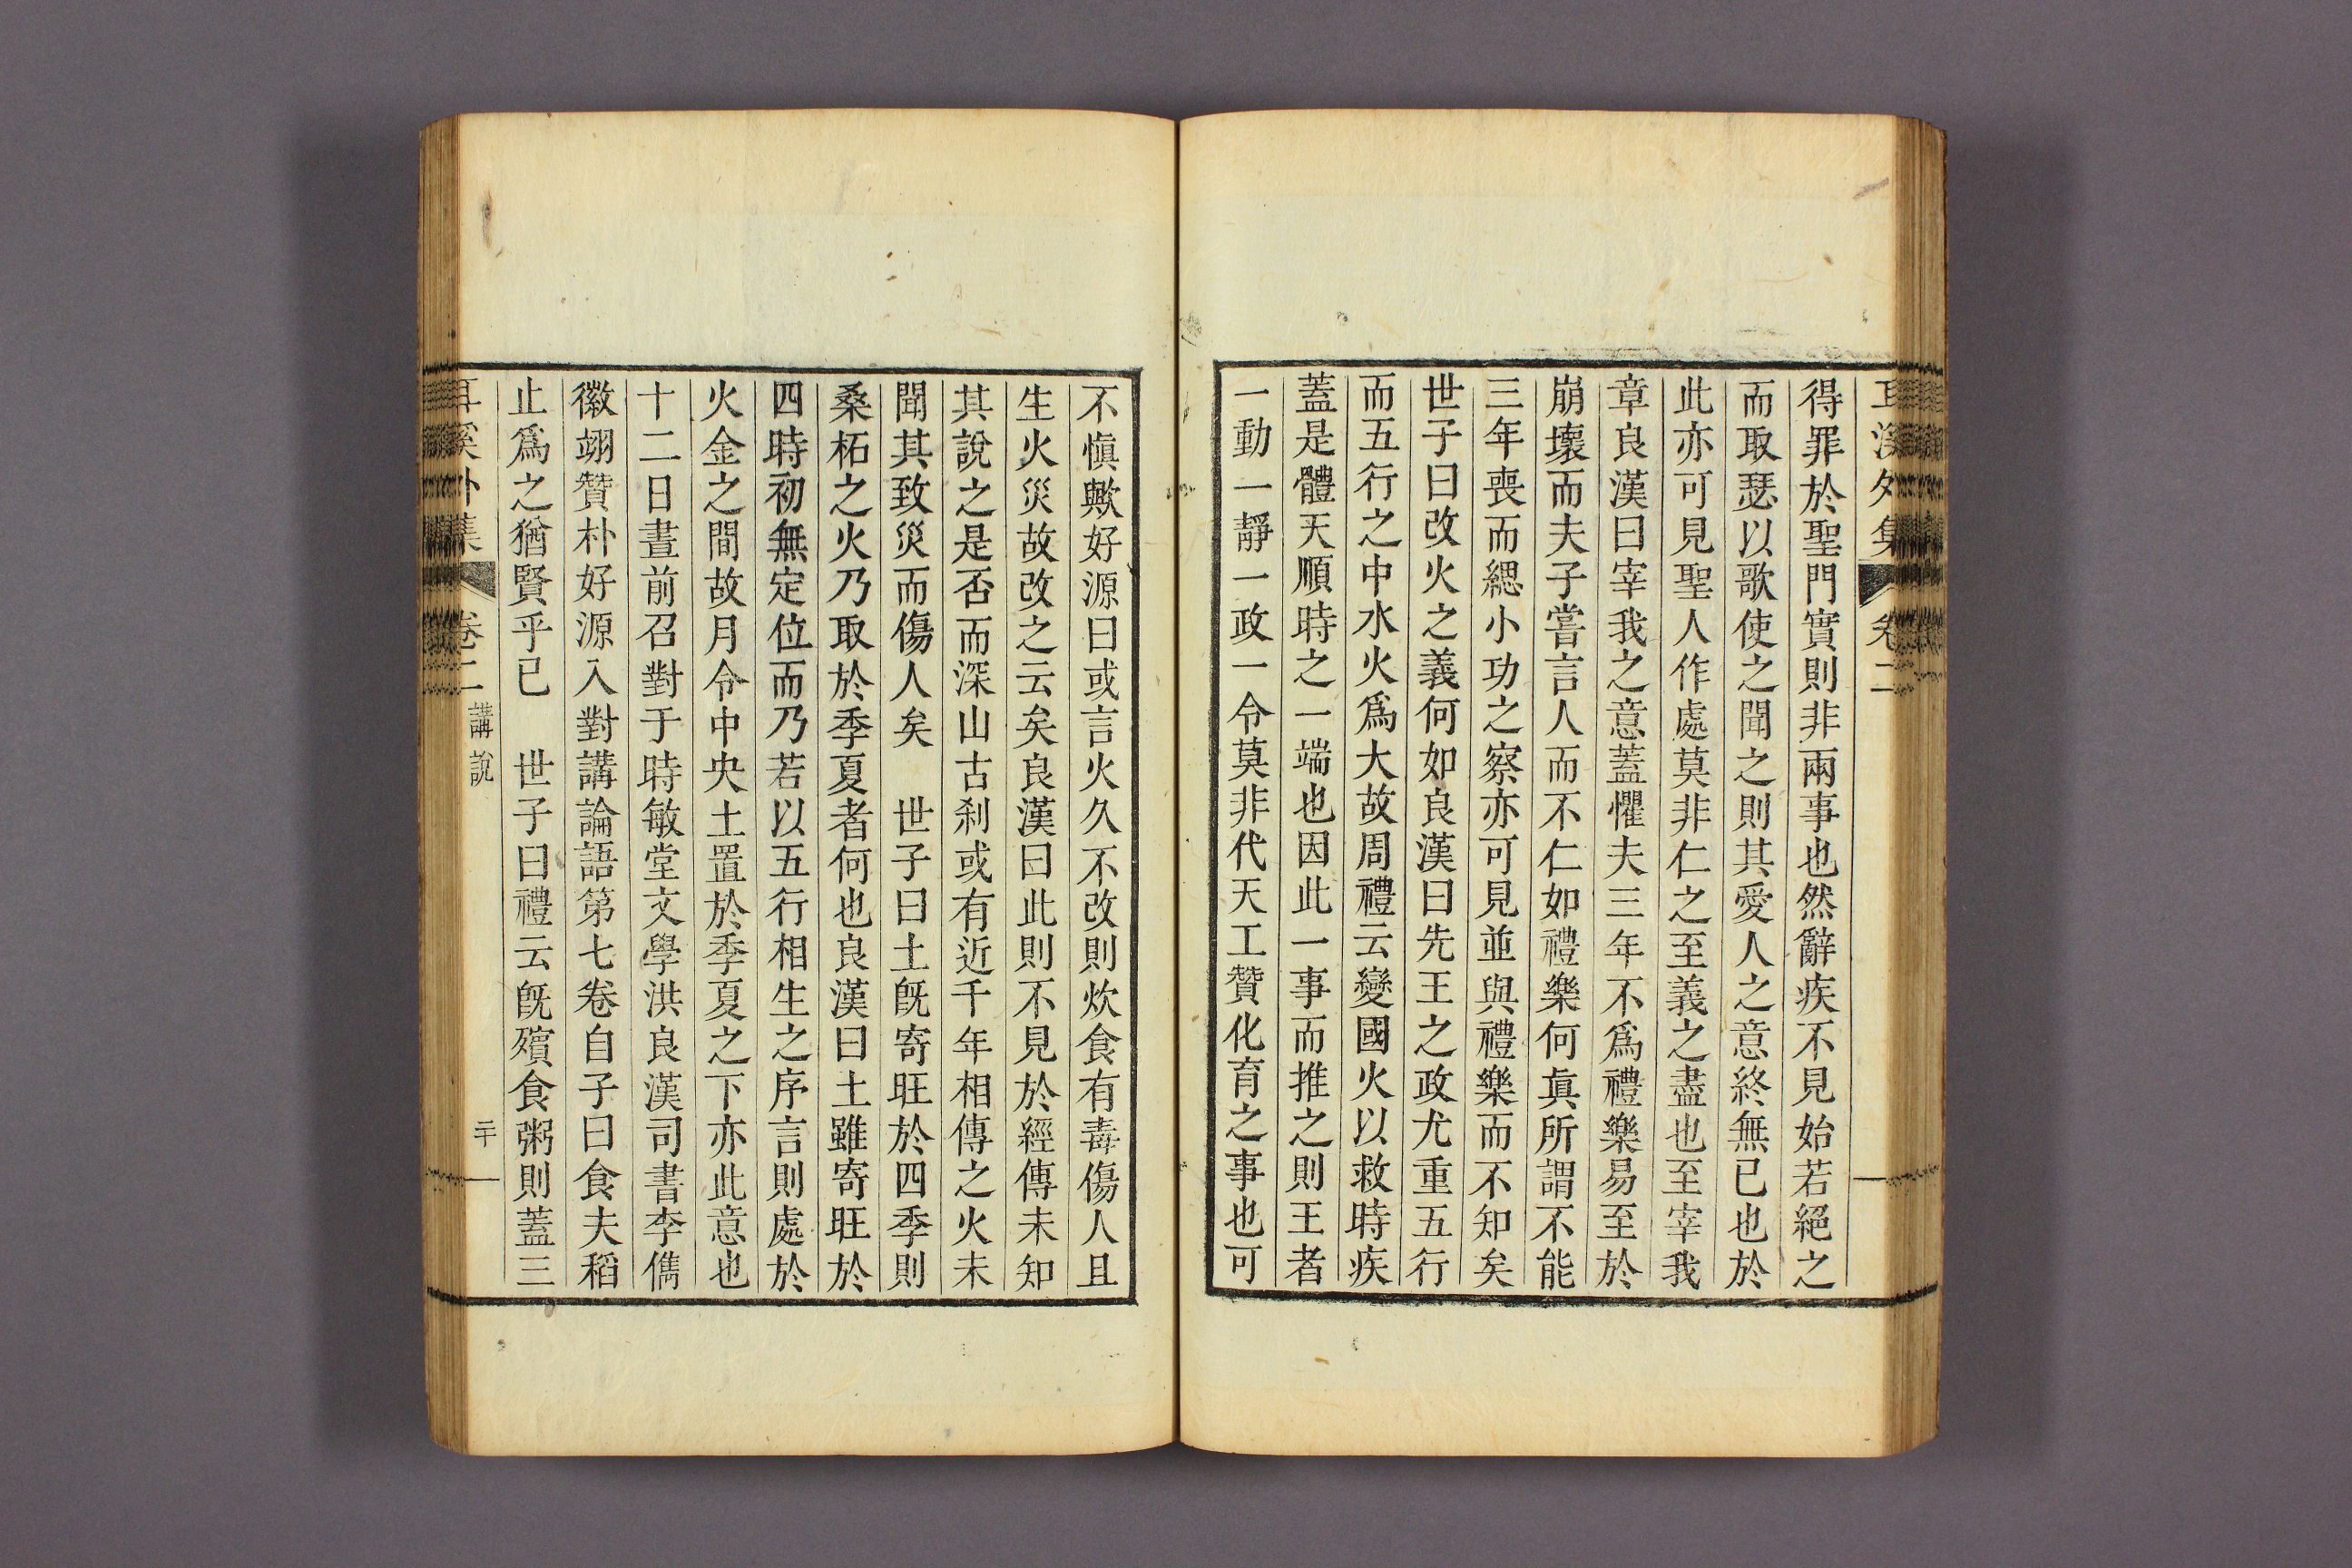 耳溪外集 卷二
得罪於聖門實則非兩事也然辭疾不見始若絕之
而取瑟以歌使之聞之則其愛人之意終無已也於
此亦可見聖人作處莫非仁之至義之盡也至宰我
章良漢曰宰我之意蓋懼夫三年不爲禮樂易至於
崩壞而夫子嘗言人而不仁如禮樂何眞所謂不能
三年喪而緦小功之察亦可見並與禮樂而不知矣
世子曰改火之義何如良漢曰先王之政尤重五行
而五行之中水火爲大故周禮云變國火以救時疾
蓋是體天順時之一端也因此一事而推之則王者
一動一靜一政一令莫非代天工贊化育之事也可
不愼歟好源曰或言火久不改則炊食有毒傷人且
生火災故改之云矣良漢曰此則不見於經傳未知
其說之是否而深山古刹或有近千年相傳之火未
聞其致災而傷人矣 世子曰土旣寄旺於四季則
桑柘之火乃取於季夏者何也良漢曰土雖寄旺於
四時初無定位而乃若以五行相生之序言則處於
火金之間故月令中央土置於季夏之下亦此意也
十二日晝前召對于時敏堂文學洪良漢司書李儁
徽翊贊朴好源入對講論語第七卷自子曰食夫稻
止爲之猶賢乎已 世子曰禮云旣殯食粥則蓋三
耳溪外集 卷二 講說 二十